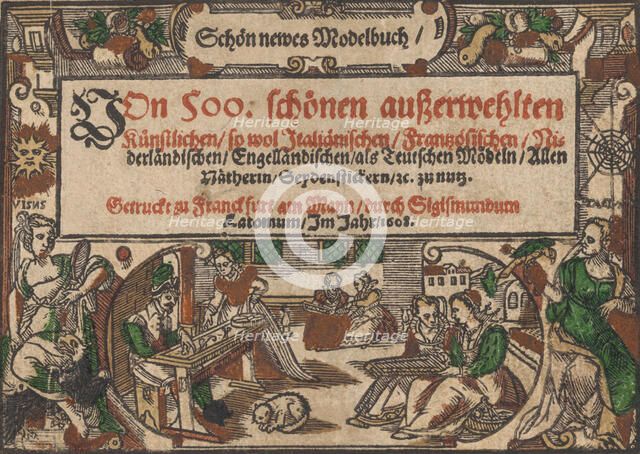 Schön newes Modelbuch /
VOn 500. schönen außerwehlten
Künstlichen / so wol Italiänischen / Frantzösischen / Ni⸗
derländischen / Engelländischen / als Teutschen Mödeln / Allen
Nätherin / Seydenstickern / ꝛc. zu nutz.
Getruckt zu Franckfurt am Mayn / durch Sigismundum
Latomum / Im Jahr / 1608.
VISUS
Heritage
Heritage
Heritage
Heritage